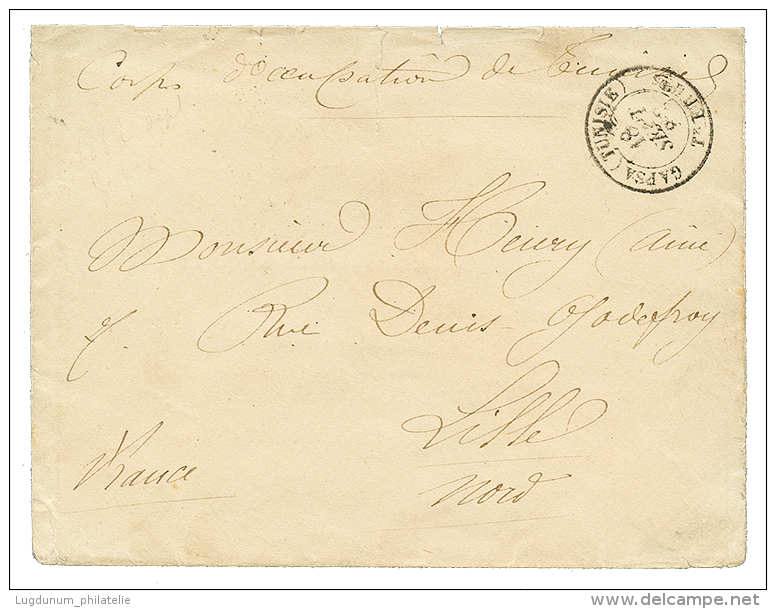 Corps d'occupation de Tunisie
GAFSA (TUNISIE)
18
SEPT
Monsieur Henry (aîné)
7. Rue Denis Godefroy
Lille
Nord
France
Lugdunum_philatelie
delcampe.net